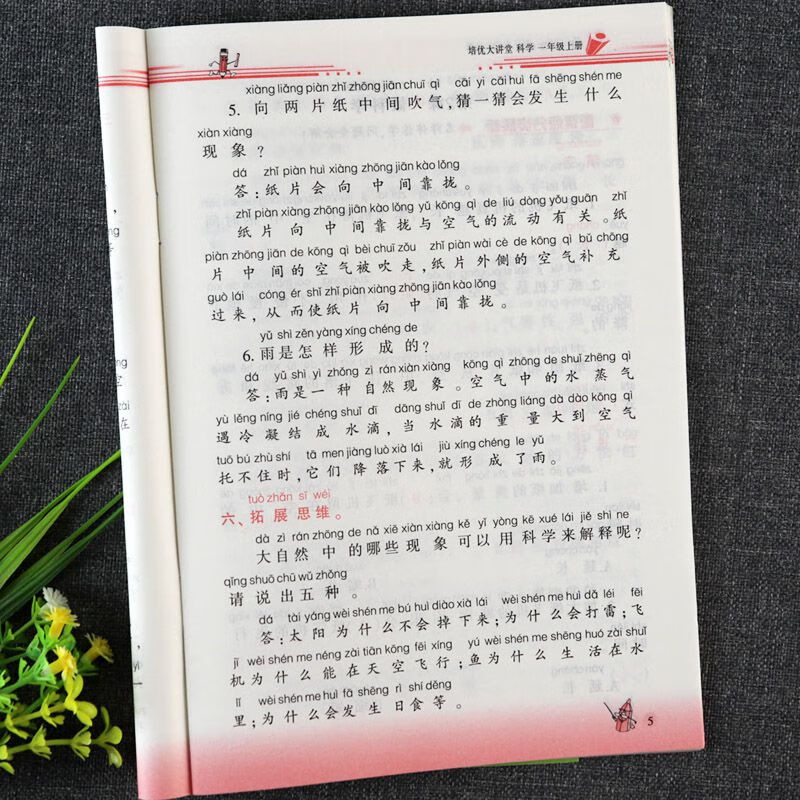 培优大讲堂 科学 一年级上册
xiàng liǎng piàn zhǐ zhōng jiān chuī qì cāi yi cāi huì fā shēng shén me
5. 向两片纸中间吹气,猜一猜会发生什么
xiàn xiàng
现象?
dá zhǐ piàn huì xiàng zhōng jiān kào lǒng
答:纸片会向中间靠拢。
zhǐ piàn xiàng zhōng jiān kào lǒng yǔ kōng qì de liú dòng yǒu guān zhǐ
纸片向中间靠拢与空气的流动有关。纸
piàn zhōng jiān de kōng qì bèi chuī zǒu zhǐ piàn wài cè de kōng qì bǔ chōng
片中间的空气被吹走,纸片外侧的空气补充
guò lái cóng ér shǐ zhǐ piàn xiàng zhōng jiān kào lǒng
过来,从而使纸片向中间靠拢。
yǔ shì zěn yàng xíng chéng de
6. 雨是怎样形成的?
dá yǔ shì yì zhǒng zì rán xiàn xiàng kōng qì zhōng de shuǐ zhēng qì
答:雨是一种自然现象。空气中的水蒸气
yù lěng níng jié chéng shuǐ dī dāng shuǐ dī de zhòng liàng dà dào kōng qì
遇冷凝结成水滴,当水滴的重量大到空气
tuō bú zhù shí tā men jiàng luò xià lái jiù xíng chéng le yǔ
托不住时,它们降落下来,就形成了雨。
tuò zhǎn sī wéi
六、拓展思维。
dà zì rán zhōng de nǎ xiē xiàn xiàng kě yǐ yòng kē xué lái jiě shì ne
大自然中的哪些现象可以用科学来解释呢?
qǐng shuō chū wǔ zhǒng
请说出五种。
dá tài yáng wèi shén me bú huì diào xià lái wèi shén me huì dǎ léi fēi
答:太阳为什么不会掉下来;为什么会打雷;飞
jī wèi shén me néng zài tiān kōng fēi xíng yú wèi shén me shēng huó zài shuǐ
机为什么能在天空飞行;鱼为什么生活在水
lǐ wèi shén me huì fā shēng rì shí děng
里;为什么会发生日食等。
5